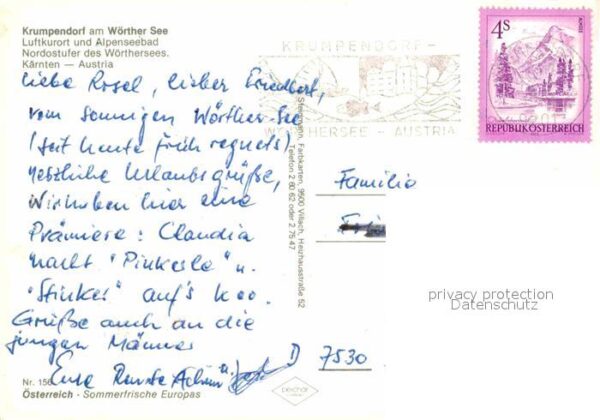 Krumpendorf am Wörther See
Luftkurort und Alpenseebad
Nordostufer des Wörthersees.
Kärnten — Austria
Liebe Rosel, lieber Friedbert,
vom sonnigen Wörther-See
(seit heute früh regnets)
herzliche Urlaubsgrüße,
Wir haben hier eine
Prämiere: Claudia
macht "Pinkerle" u.
"Stinker" auf's Klo.
Grüße auch an die
jungen Männer
Eure Renate Achim u.
Nr. 156
Österreich - Sommerfrische Europas
Farbkarten, 9500 Villach, Heizhausstraße 52
Telefon 2 80 62 oder 2 75 47
KRUMPENDORF -
WÖRTHERSEE - AUSTRIA
4S
REPUBLIK ÖSTERREICH
Familie
D 7530
privacy protection
Datenschutz